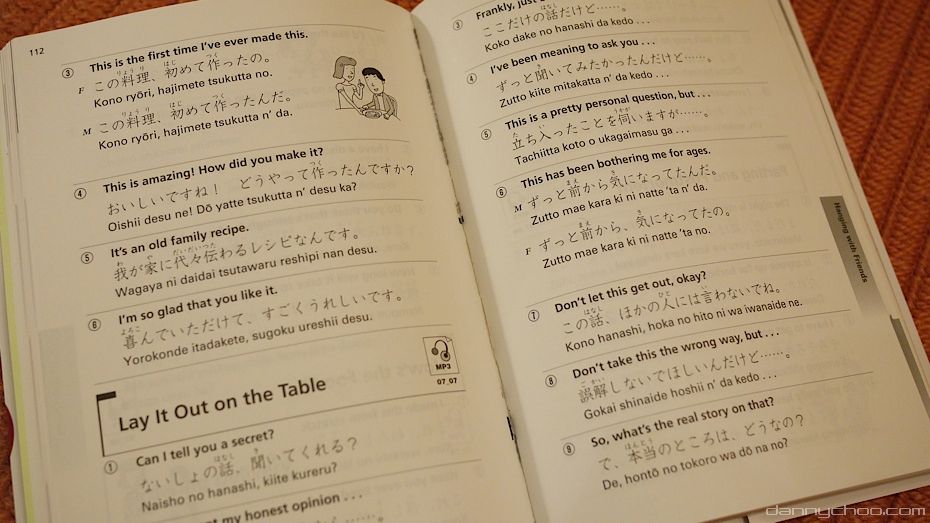 112
This is the first time I've ever made this.
りょうり はじ つく
③ F この料理、初めて作ったの。
Kono ryōri, hajimete tsukutta no.
りょうり はじ つく
M この料理、初めて作ったんだ。
Kono ryōri, hajimete tsukutta n' da.
④ This is amazing! How did you make it?
つく
おいしいですね! どうやって作ったんですか?
Oishii desu ne! Dō yatte tsukutta n' desu ka?
⑤ It's an old family recipe.
わ や だいだいつた
我が家に代々伝わるレシピなんです。
Wagaya ni daidai tsutawaru reshipi nan desu.
⑥ I'm so glad that you like it.
よろこ
喜んでいただけて、すごくうれしいです。
Yorokonde itadakete, sugoku ureshii desu.
MP3
07_07
Lay It Out on the Table
① Can I tell you a secret?
はなし き
ないしょの話、聞いてくれる?
Naisho no hanashi, kiite kureru?
my honest opinion . . .
③ Frankly, just
はなし
ここだけの話だけど……。
Koko dake no hanashi da kedo . . .
④ I've been meaning to ask you . . .
き
ずっと聞いてみたかったんだけど……。
Zutto kiite mitakatta n' da kedo . . .
⑤ This is a pretty personal question, but . . .
た い うかが
立ち入ったことを伺いますが……。
Tachiitta koto o ukagaimasu ga . . .
⑥ This has been bothering me for ages.
まえ き
M ずっと前から気になってたんだ。
Zutto mae kara ki ni natte 'ta n' da.
まえ き
F ずっと前から、気になってたの。
Zutto mae kara ki ni natte 'ta no.
⑦ Don't let this get out, okay?
はなし ひと い
この話、ほかの人には言わないでね。
Kono hanashi, hoka no hito ni wa iwanaide ne.
⑧ Don't take this the wrong way, but . . .
ごかい
誤解しないでほしいんだけど……。
Gokai shinaide hoshii n' da kedo . . .
⑨ So, what's the real story on that?
ほんとう
で、本当のところは、どうなの?
De, hontō no tokoro wa dō na no?
Hanging with Friends
dannychoo.com